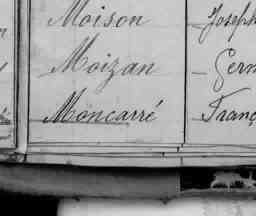 Moison Joseph
Moizan Germ
Moncarré Franç